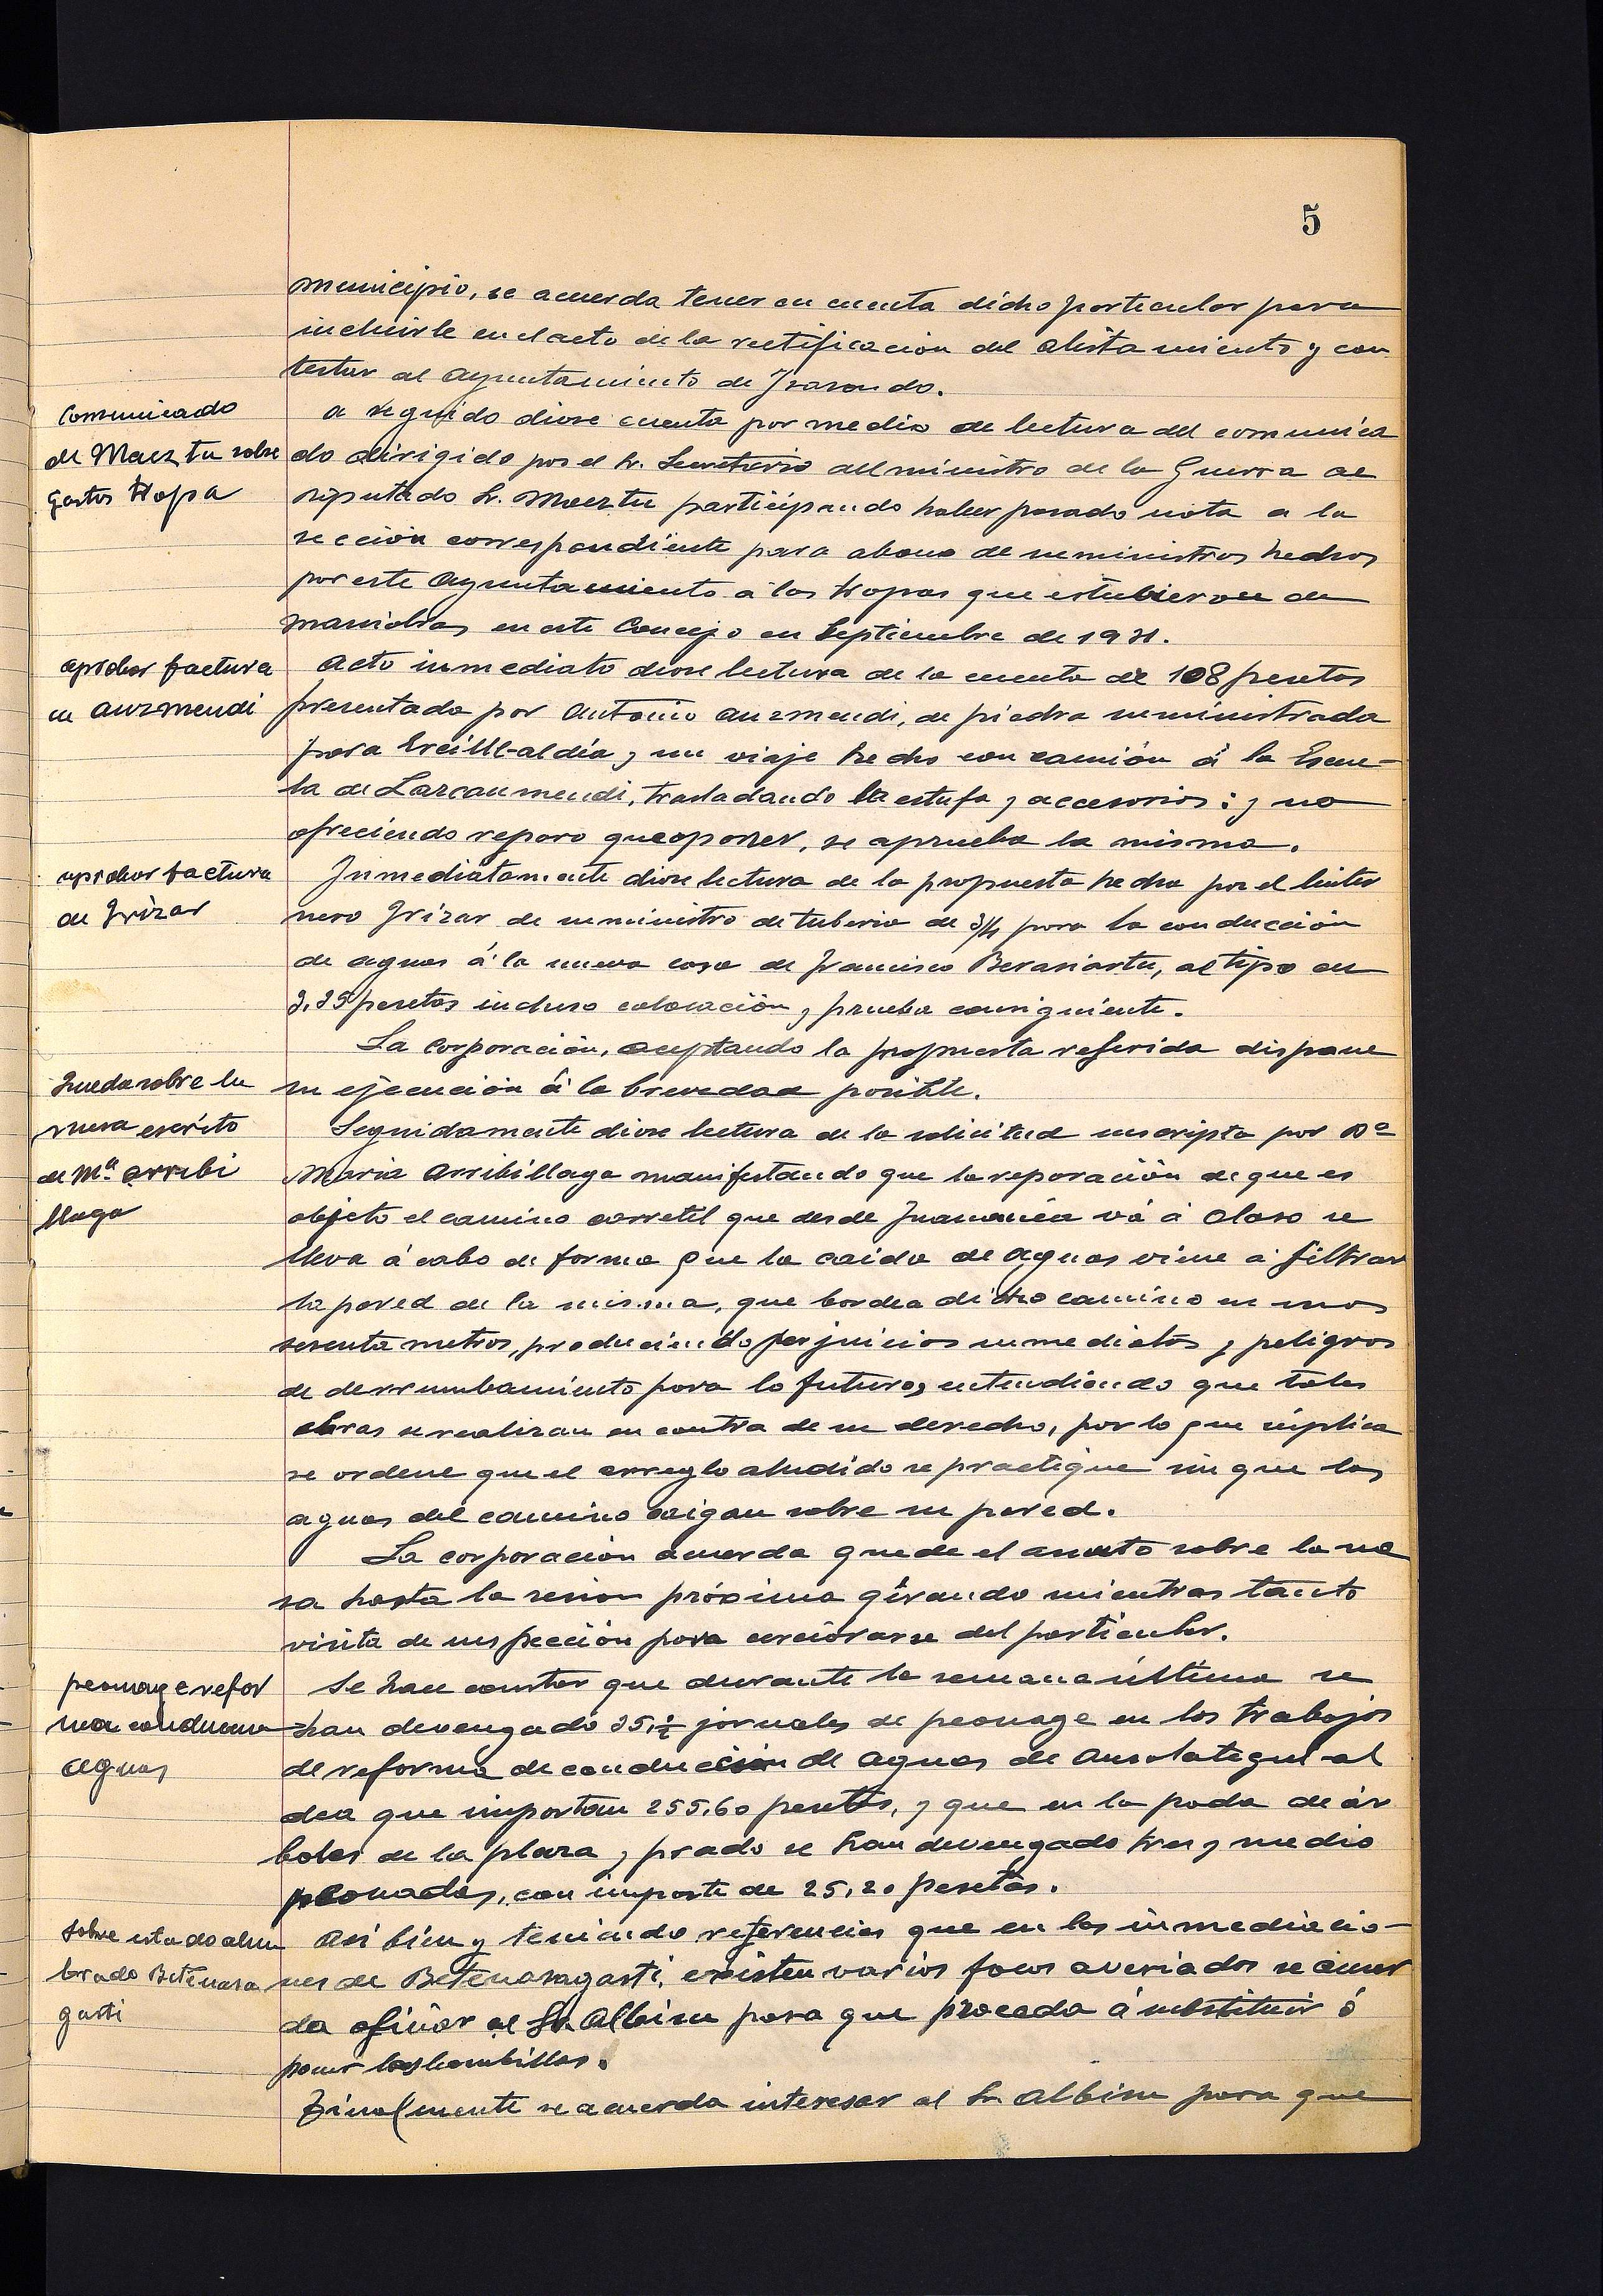 5
municipio, se acuerda tener en cuenta dicho particular para
incluirle en el acto de la rectificacion del alistamiento y con
testar al Ayuntamiento de
Comunicado
de Maeztu sobre
gastos tropa
a seguido diose cuenta por medio de lectura del comunica
do dirigido por el Sr. Secretario del ministro de la Guerra al
diputado Sr. Maeztu participando haber pasado nota a la
sección correspondiente para abono de suministros hechos
por este Ayuntamiento á las tropas que estubieron de
maniobras en este Concejo en Septiembre de 1931.
aprobar factura
de Auzmendi
Acto inmediato diose lectura de la cuenta de 108 pesetas
presentada por Antonio Auzmendi, de piedra suministrada
para Ercilla-aldia y un viaje hecho con camión á la Escue-
la de Larcaumendi, trasladando la estufa y accesorios; y no
ofreciendo reparo que oponer, se aprueba la misma.
aprobar factura
de Irizar
Inmediatamente diose lectura de la propuesta hecha por el linter
nero Irizar de suministro de tuberia de 3/4 para la conducción
de aguas á la nueva casa de Francisco Berasiartu, al tipo de
3,35 pesetas incluso colocación y prueba consiguiente.
La Corporación, aceptando la propuesta referida dispone
su ejecución á la brevedad posible.
Queda sobre la
mesa escrito
de Mª Arribi
llaga
Seguidamente diose lectura de la solicitud suscripta por Dª
Maria Arribillaga manifestando que la reparación de que es
objeto el camino carretil que desde Juamania vá á Olaso se
lleva á cabo de forma que la caida de aguas viene á filtrar
la pared de la misma, que bordea dicho camino en unos
sesenta metros, produciendo perjuicios inmediatos y peligros
de derrumbamiento para lo futuro, entendiendo que tales
obras se realizan en contra de su derecho, por lo que suplica
se ordene que el arreglo aludido se practique sin que las
aguas del camino caigan sobre su pared.
La corporación acuerda quede el asunto sobre la me
sa hasta la sesion próxima girando mientras tanto
visita de inspección para cerciorarse del particular.
peonage refor
ma conduccion
aguas
Se hace constar que durante la semana última se
han devengado 35,½ jornales de peonage en los trabajos
de reforma de conducción de aguas de Ansolategui-al
dea que importan 255,60 pesetas, y que en la poda de ár
boles de la plaza y prado se han devengado tres y medio
peonadas, con importe de 25,20 pesetas.
Sobre estado alum
brado Betenasa
gasti
Asi bien y teniendo referencias que en las inmediacio-
nes de Betenasagasti, existen varios focos averiados se acuer
da oficiar al Sr. Albisu para que proceda á substituir ó
poner las bombillas.
Finalmente se acuerda interesar al Sr. Albisu para que